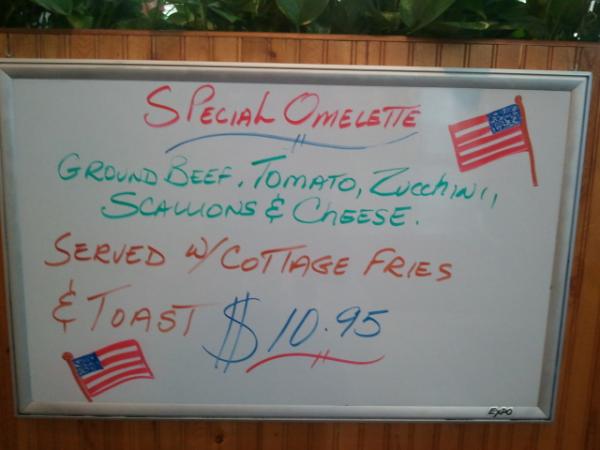 SPECIAL OMELETTE
GROUND BEEF, TOMATO, ZUCCHINI,
SCALLIONS & CHEESE.
SERVED W/ COTTAGE FRIES
& TOAST $10.95
EXPO